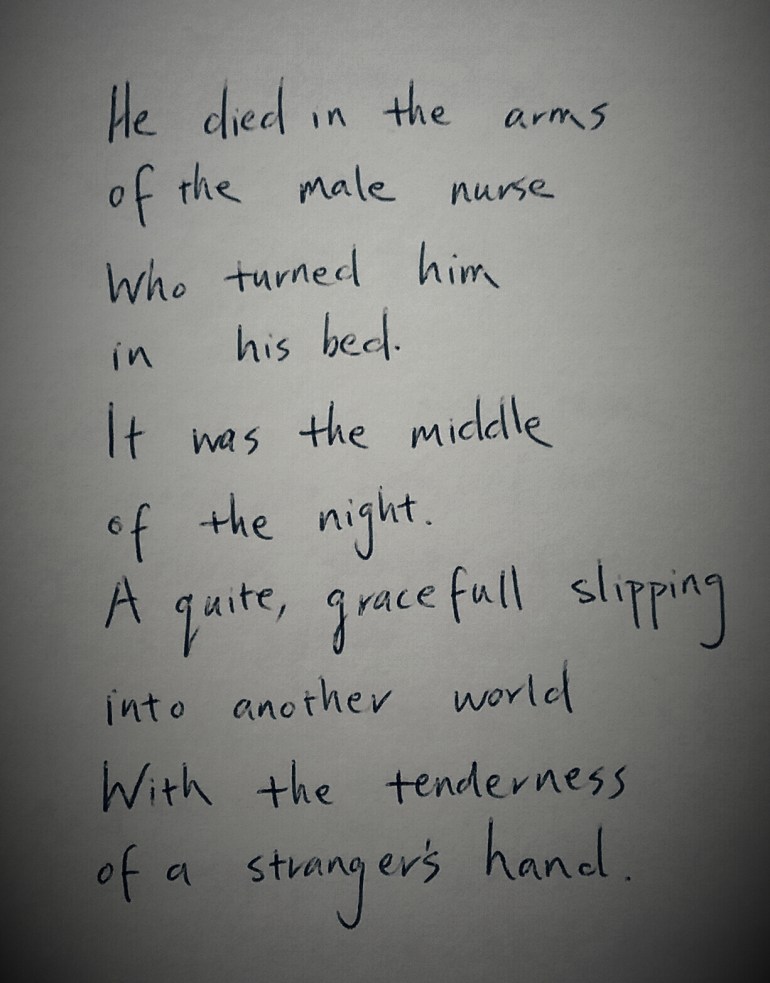 He died in the arms
of the male nurse
Who turned him
in his bed.
It was the middle
of the night.
A quite, gracefull slipping
into another world
With the tenderness
of a stranger's hand.